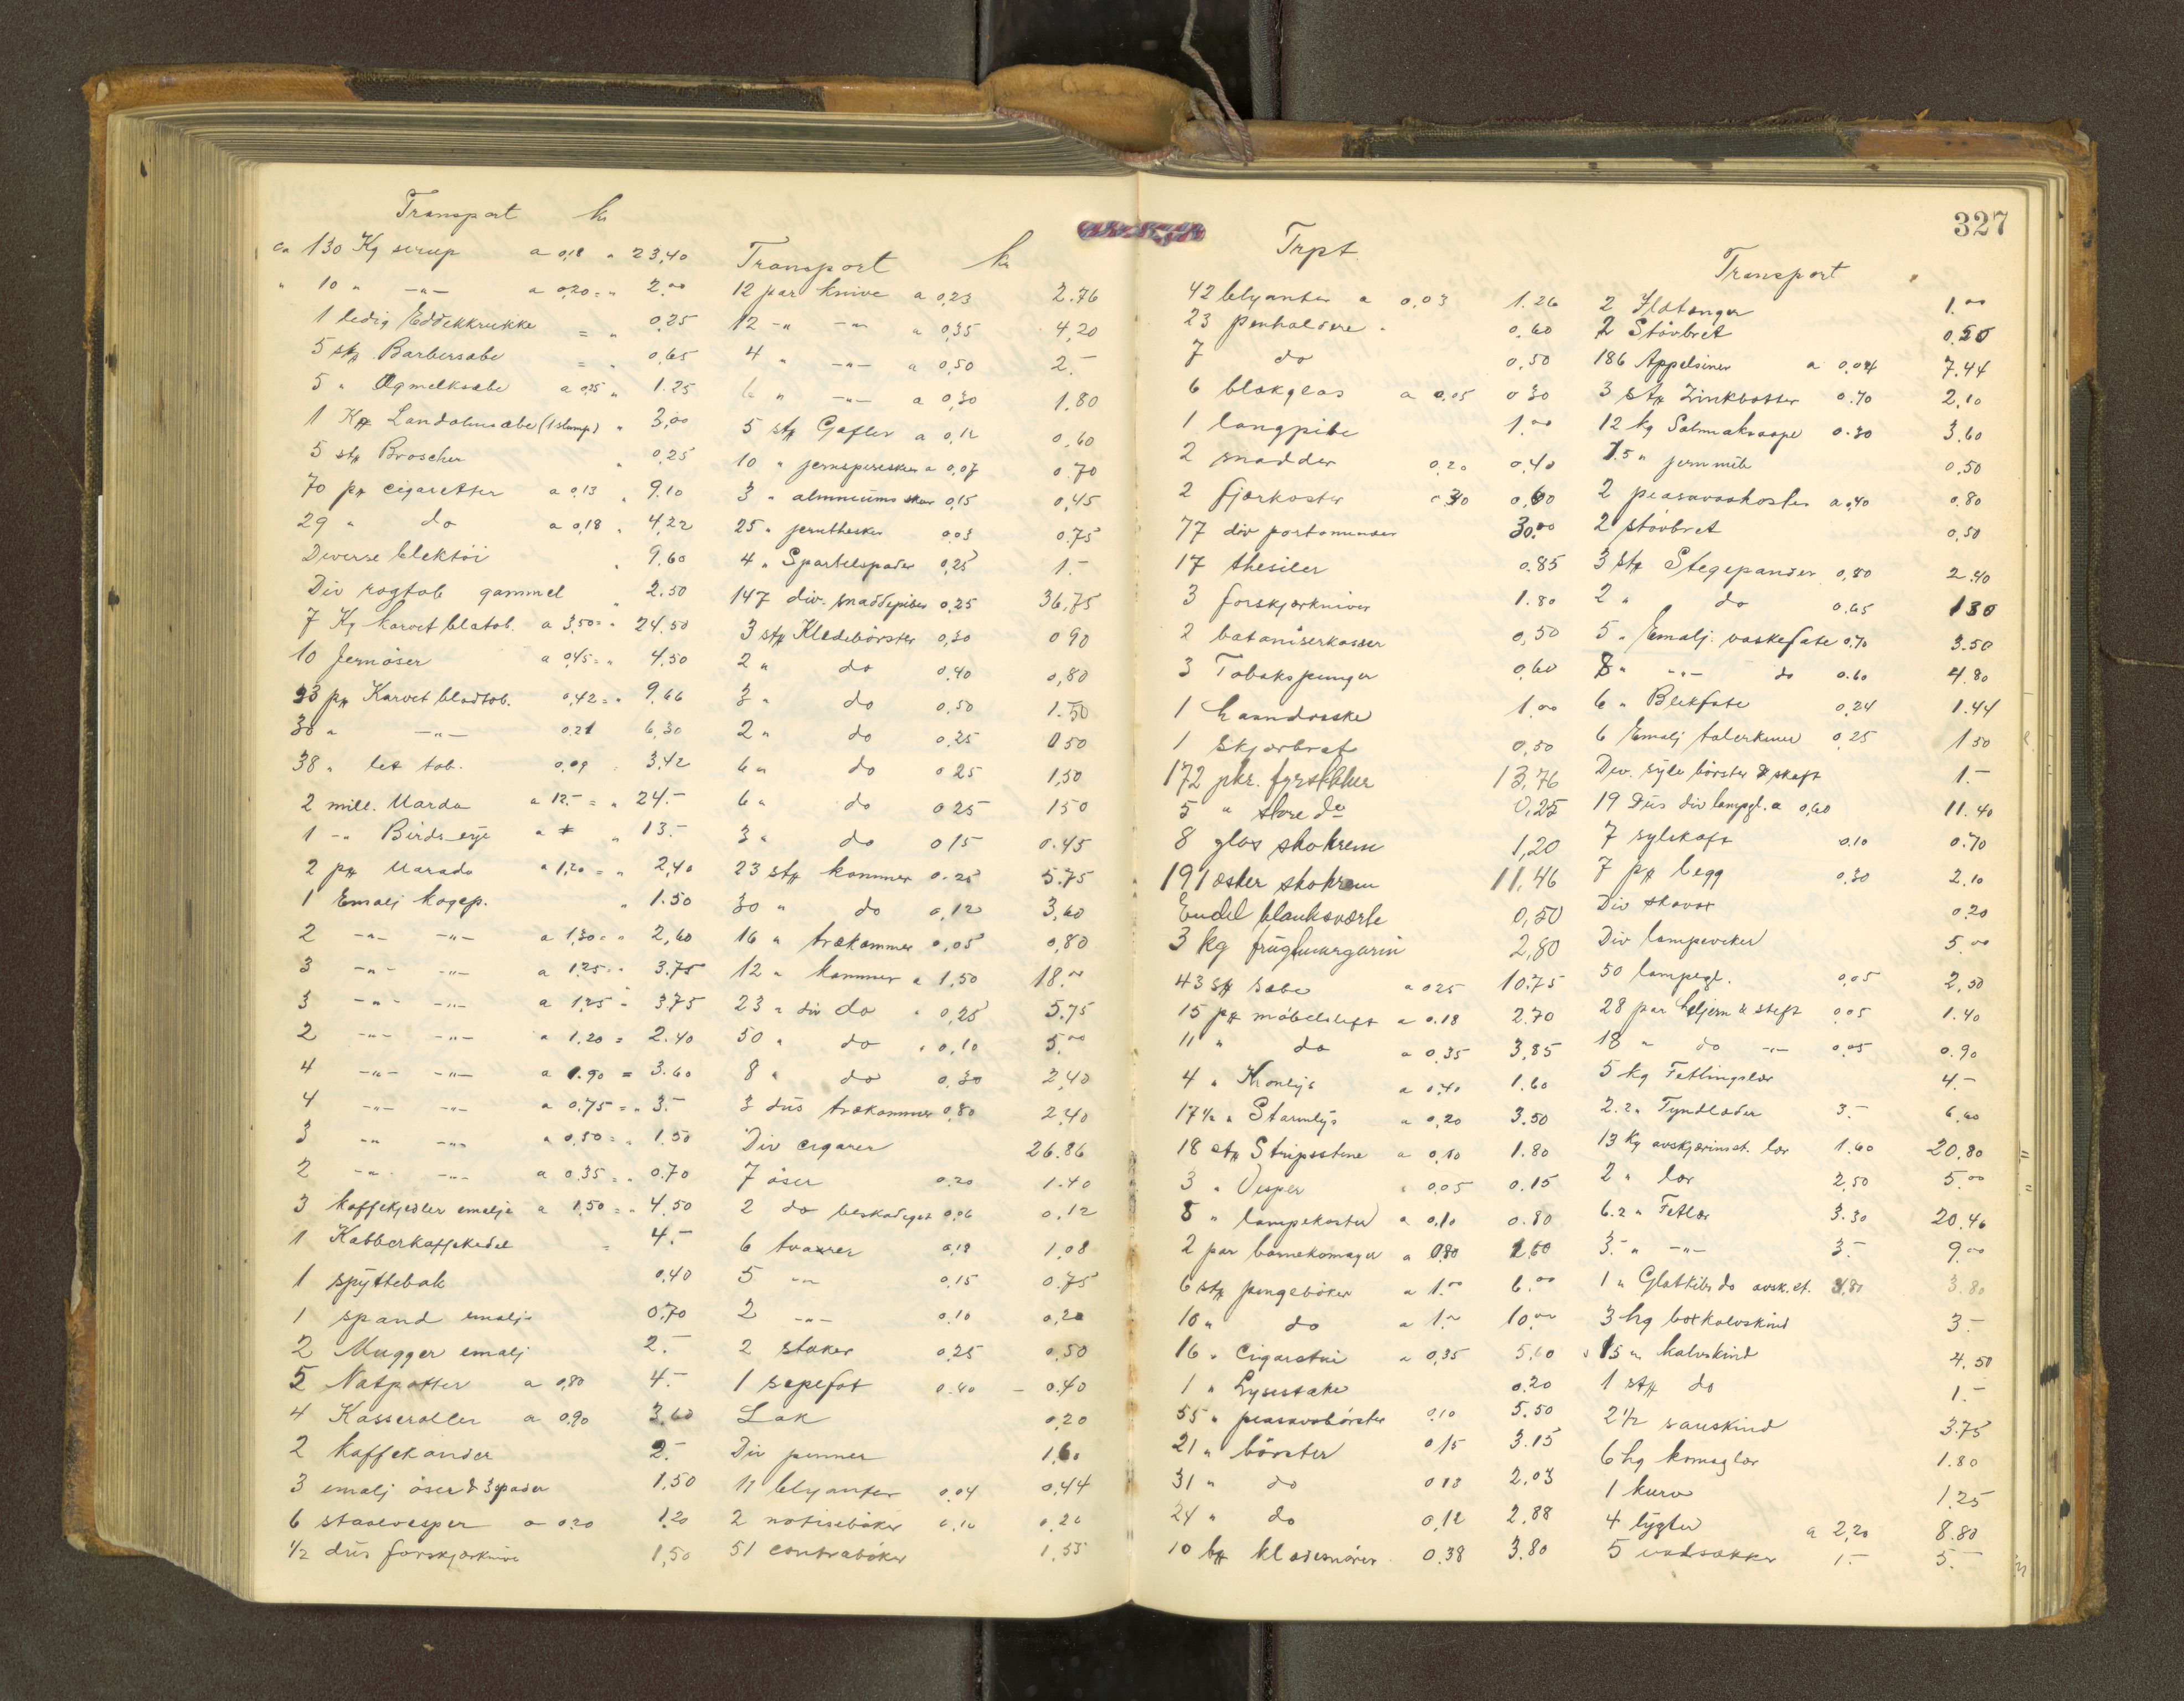 Transport kr
ca 130 Kg sirup a 0,18 " 23,40
" 10 " -"- a 0,20 = " 2.00
1 ledig Eddekkrukke = " 0,25
5 stk Barbersæbe = " 0,65
5 " Ægmelksæbe a 0,25 " 1.25
1 Kss Landolinsæbe (1 slump) " 3,00
5 stk Broscher " 0,25
70 pk cigaretter a 0,13 " 9.10
29 " do a 0,18 " 4,22
Diverse blektöi " 9,60
Div røgtob gammel " 2.50
7 Kg karvet bladtob. a 3,50 = " 24,50
10 Jernöser a 0,45 = " 4,50
23 pk Karvet bladtob. 0,42 = " 9,66
30 " -"- 0,21 6,30
38 " let tob. 0,09 3,42
2 mill. Marda a 12.- = " 24.-
1 -" Birds eye a " 13.-
2 pk Marado a 1,20 = " 2,40
1 Emalj kogep. " 1.50
2 -"- -"- a 1,30 = " 2,60
3 -"- -"- a 1,25 = " 3.75
3 -"- -"- a 1,25 = 3.75
2 -"- -"- a 1.20 = 2.40
4 -"- -"- a 0.90 = 3.60
4 -"- -"- a 0,75 = " 3.-
3 -"- -"- a 0,50 = " 1.50
2 -"- -"- a 0.35 = " 0.70
3 kaffekjedler emalje a 1,50 = " 4,50
1 Kobberkaffekedel = 4.-
1 spyttebak 0,40
1 spand emalje 0,70
2 Mugger emalj 2.-
5 Natpotter a 0,80 4.-
4 Kasseroller a 0,90 3,60
2 kaffekander 2.-
3 emalj öser & 3 spader 1,50
6 staalvesper a 0.20 1.20
1/2 dus forskjærknive 1,50
Transport kr
12 par knive a 0,23 2.76
12 -" -"- a 0,35 4,20
4 " -"- a 0,50 2.-
6 " -"- a 0,30 1.80
5 stk Gafler a 0,12 0,60
10 " jernspiseskeer a 0,07 0.70
3 " alumniums skeer 0,15 0,45
25 " jernttheskeer 0,03 0.75
4 " Spartelspader 0,25 1.-
147 div. snaddepiber 0,25 36,75
3 stk Kledebörster 0,30 0 90
2 " do 0,40 0,80
3 " do 0,50 1.50
2 " do 0,25 0 50
6 " do 0 25 1,50
6 " do 0 25 1 50
3 " do 0 15 0.45
23 stk kammer 0.25 5.75
30 " do 0,12 3,60
16 " trækammer 0,05 0,80
12 " kammer a 1,50 18.00
23 " div do " 0,25 5.75
50 " do " 0,10 5.00
8 " do 0,30 2,40
3 dus trækammer 0,80 2,40
Div cigarer 26.86
7 öser 0.20 1.40
2 do beskadiget 0,06 0,12
6 traurer 0,18 1,08
5 -"- 0,15 0.75
2 -"- 0,10 0,20
2 staker 0,25 0,50
1 sepefat 0.40 - 0.40
Lak 0,20
Div penner 1,60
11 blyanter 0,04 0,44
2 notisebøker 0,10 0,20
51 contrabøker 1,53
327
Trpt.
42 blyanter a 0,03 1.26
23 penholdere " 0.60
7 do 0,50
6 blækglas a 0,05 0 30
1 langpibe 1.00
2 snadder 0,20 0,40
2 fjærkoster 0.30 0,60
77 div portomunaer 30.00
17 thesiler 0.85
3 forskjærkniver 1.80
2 bataniserkasser 0,50
3 Tobakspunger 0,60
1 haandvæske 1.00
1 skjærbræt 0,50
172 pkr. fyrstikker 13,76
5 " store do 0,25
8 glas skokrem 1,20
191 æsker skokrem 11,46
Endel blanksværte 0,50
3 kg frugtmargarin 2,80
43 stk sæbe a 0 25 10.75
15 pk møbelstift a 0.18 2.70
11 " do a 0.35 3,85
4 " Kronlys a 0,40 1.60
17 1/2 " Starinlys a 0,20 3.50
18 stk Stripsstene a 0,10 1.80
3 " Vesper " 0.05 0.15
8 " lampekoster a 0,10 0.80
2 par barnekomager a 0,80 1,60
6 stk pungebøker a 1.00 6.00
10 " do a 1.00 10.00
16 " Cigaretui a 0,35 5,60
1 " Lysestake 0.20
55 " peasavabörster 0,10 5.50
21 " börster 0,15 3.15
31 " do 0 13 2.03
24 " do 0,12 2.88
10 bk klædesnører 0.38 3.80
Transport
2 Flatænger 1.00
2 Støvbret 0,50
186 Appelsiner a 0,04 7.44
3 stk Zinkbøtter 0.70 2.10
12 kg Salmiaksaape 0.30 3.60
1.5 " jernmile 0.50
2 peasavaskoster a 0,40 0.80
2 støvbret 0,50
3 stk Stegepander 0,80 2.40
2 " do 0.65 1 30
5 " Emalj. vaskefate 0,70 3.50
8 " -"- do 0.60 4.80
6 " Blekfate 0,24 1.44
6 Emalj talerkner 0,25 1 50
Div. syle börster & skaft 1.-
19 Dus div lampegl. a 0,60 11.40
7 sylskaft 0.10 0.70
7 pk begg 0.30 2.10
Div skovox 0.20
Div lampeveker 5.00
50 lampegl. 0,05 2,50
28 par heljern & stift 0,05 1.40
18 " do -"- 0,05 0.90
5 kg Fetlingslær 4.-
2.2 " Tyndlæder 3.- 6.60
13 Kg avskjærinst. lær 1.60 20.80
2 " lær 2,50 5.00
6.2 " Fetlær 3.30 20.46
3.- " -"- 3.- 9.00
1 " Glatkibs do avsk.st. 3,80 3.80
3 hg boxkalvskind 3.-
15 " kalvskind 4.50
1 stk do 1.-
2 1/2 saueskind 3.75
6 hg komaglær 1.80
1 kurv 1.25
4 lygter a 2,20 8.80
5 vadsækker 1.- 5.-